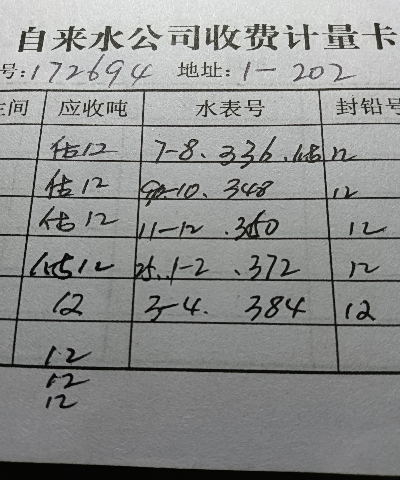 自来水公司收费计量卡
号:172694 地址:1-202
主间 应收吨 水表号 封铅号
估12 7-8. 336. 估 12
估12 9-10. 348 12
估12 11-12. 360 12
估12 25. 1-2 .372 12
12 3-4. 384 12
12
12
12